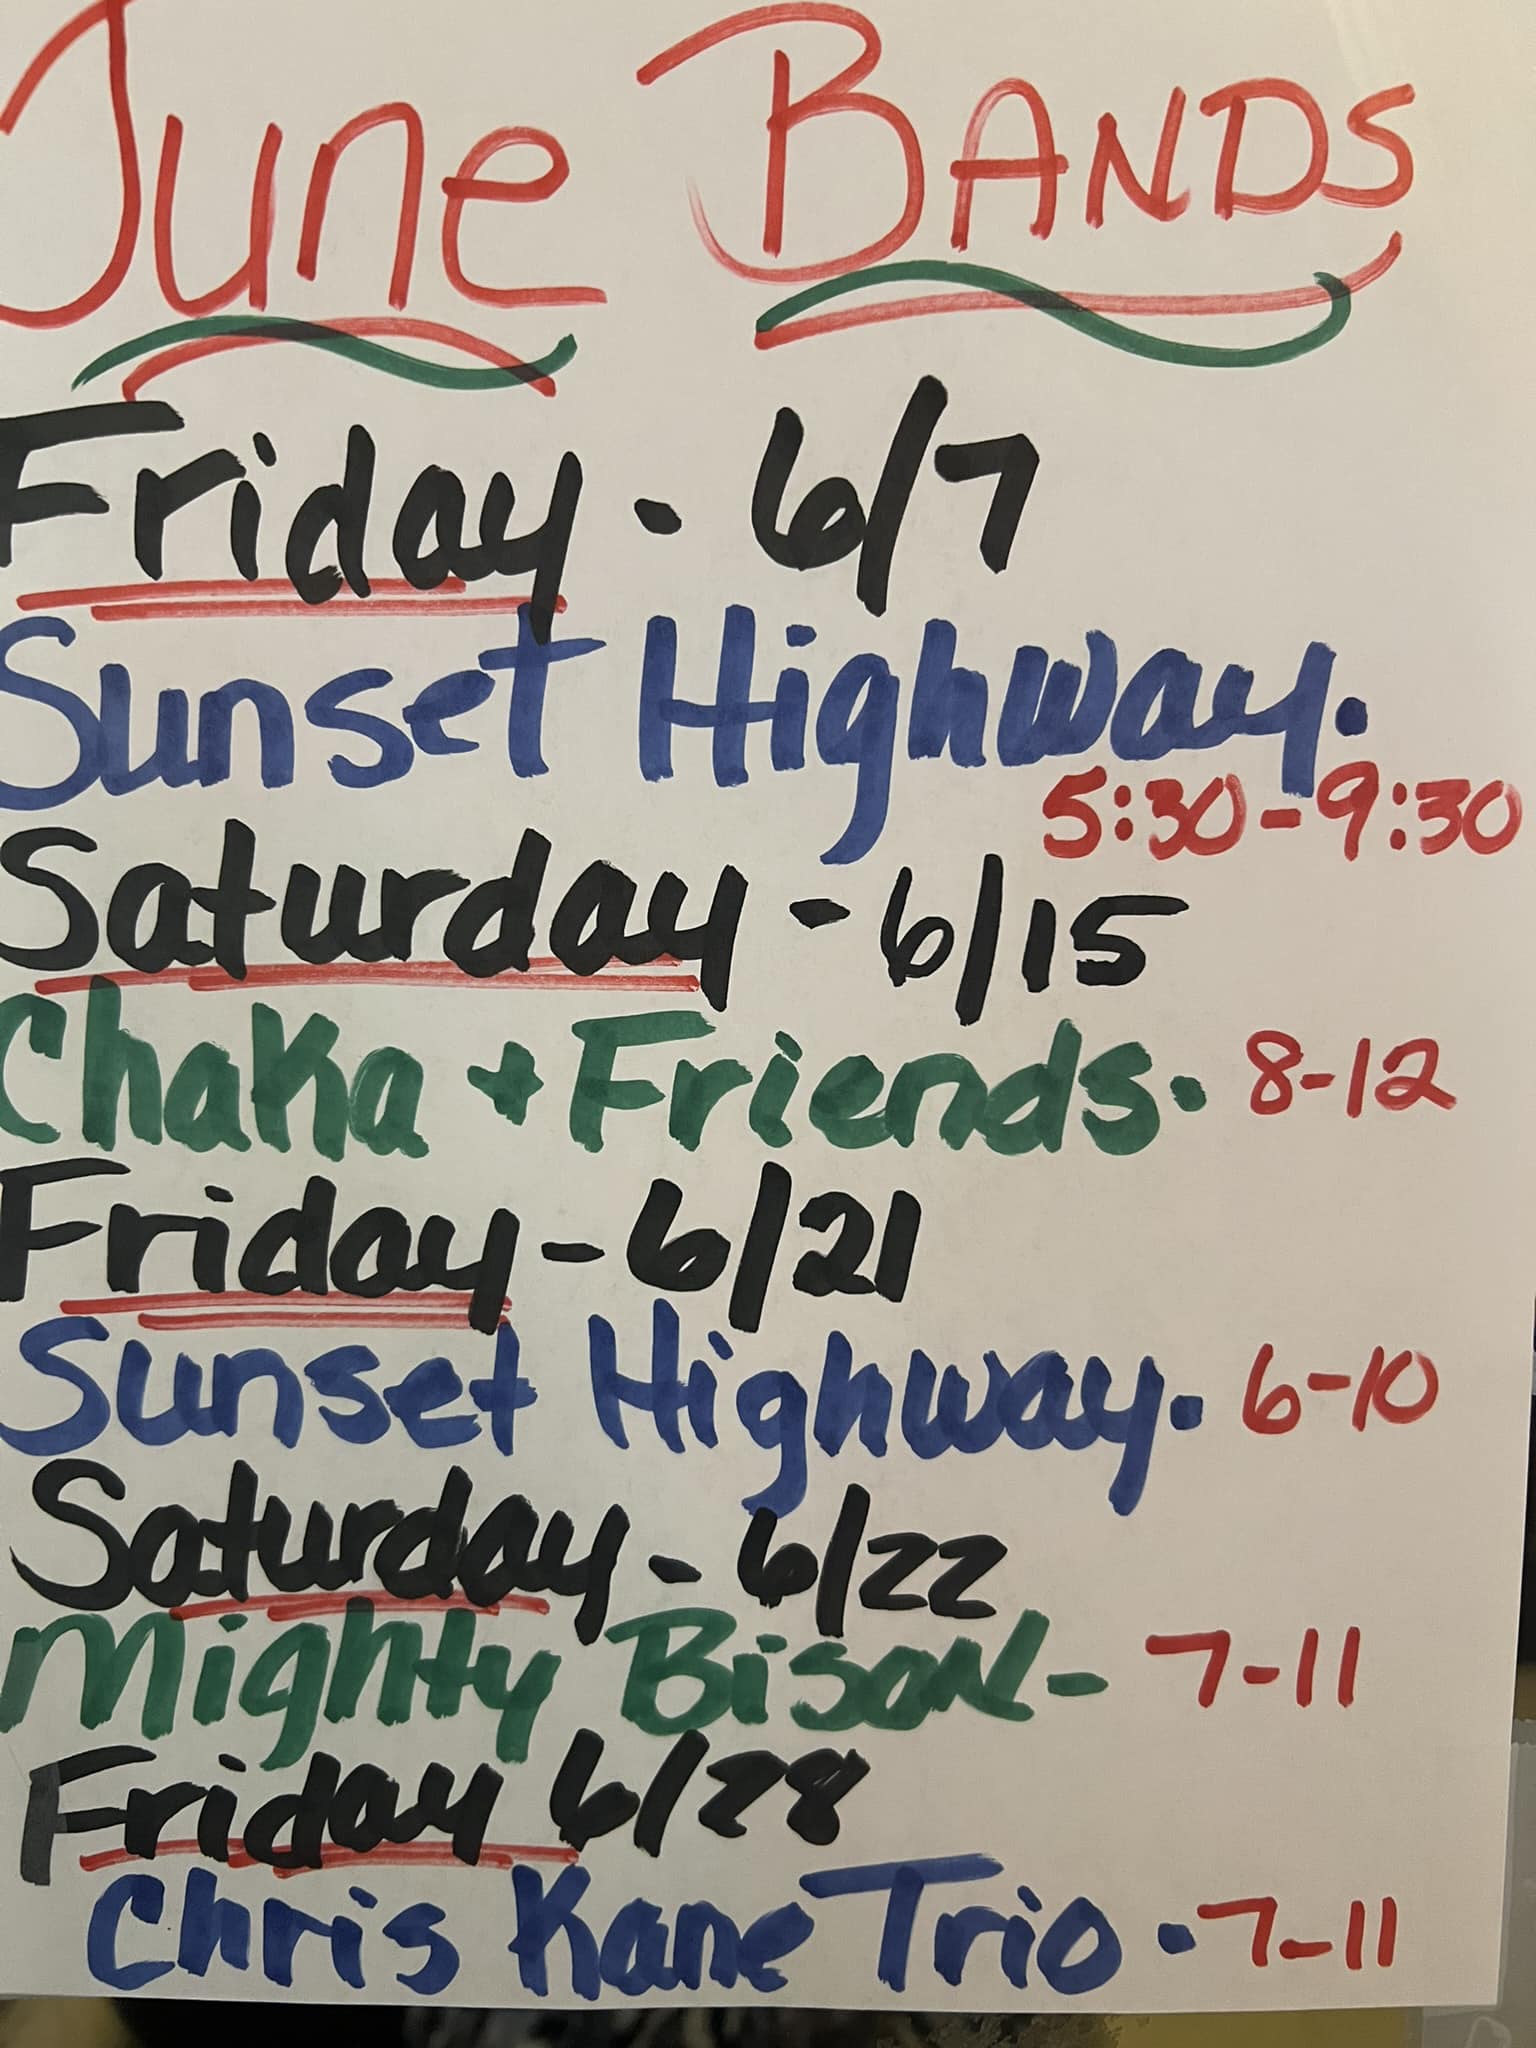 June BANDS
Friday - 6/7
Sunset Highway.
5:30-9:30
Saturday - 6/15
Chaka + Friends. 8-12
Friday - 6/21
Sunset Highway. 6-10
Saturday - 6/22
Mighty Bison - 7-11
Friday 6/28
Chris Kane Trio . 7-11